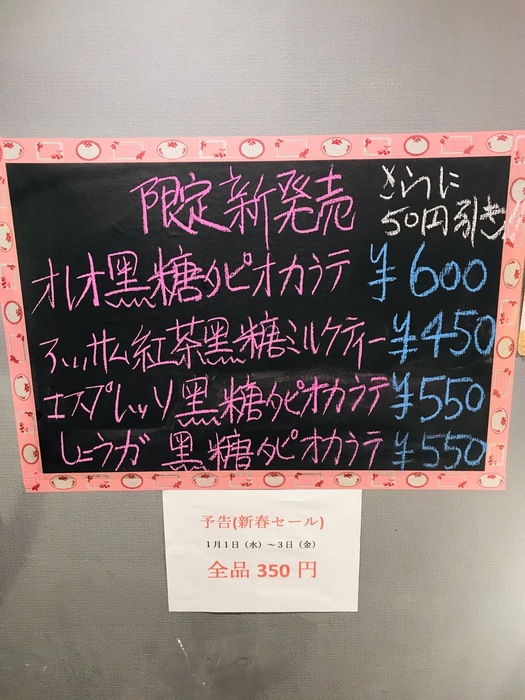 限定新発売
さらに
50円引き!!
オレオ黒糖タピオカラテ ¥600
アッサム紅茶黒糖ミルクティー ¥450
エスプレッソ黒糖タピオカラテ ¥550
しょうが 黒糖タピオカラテ ¥550
予告(新春セール)
1月1日（水）～3日（金）
全品 350 円